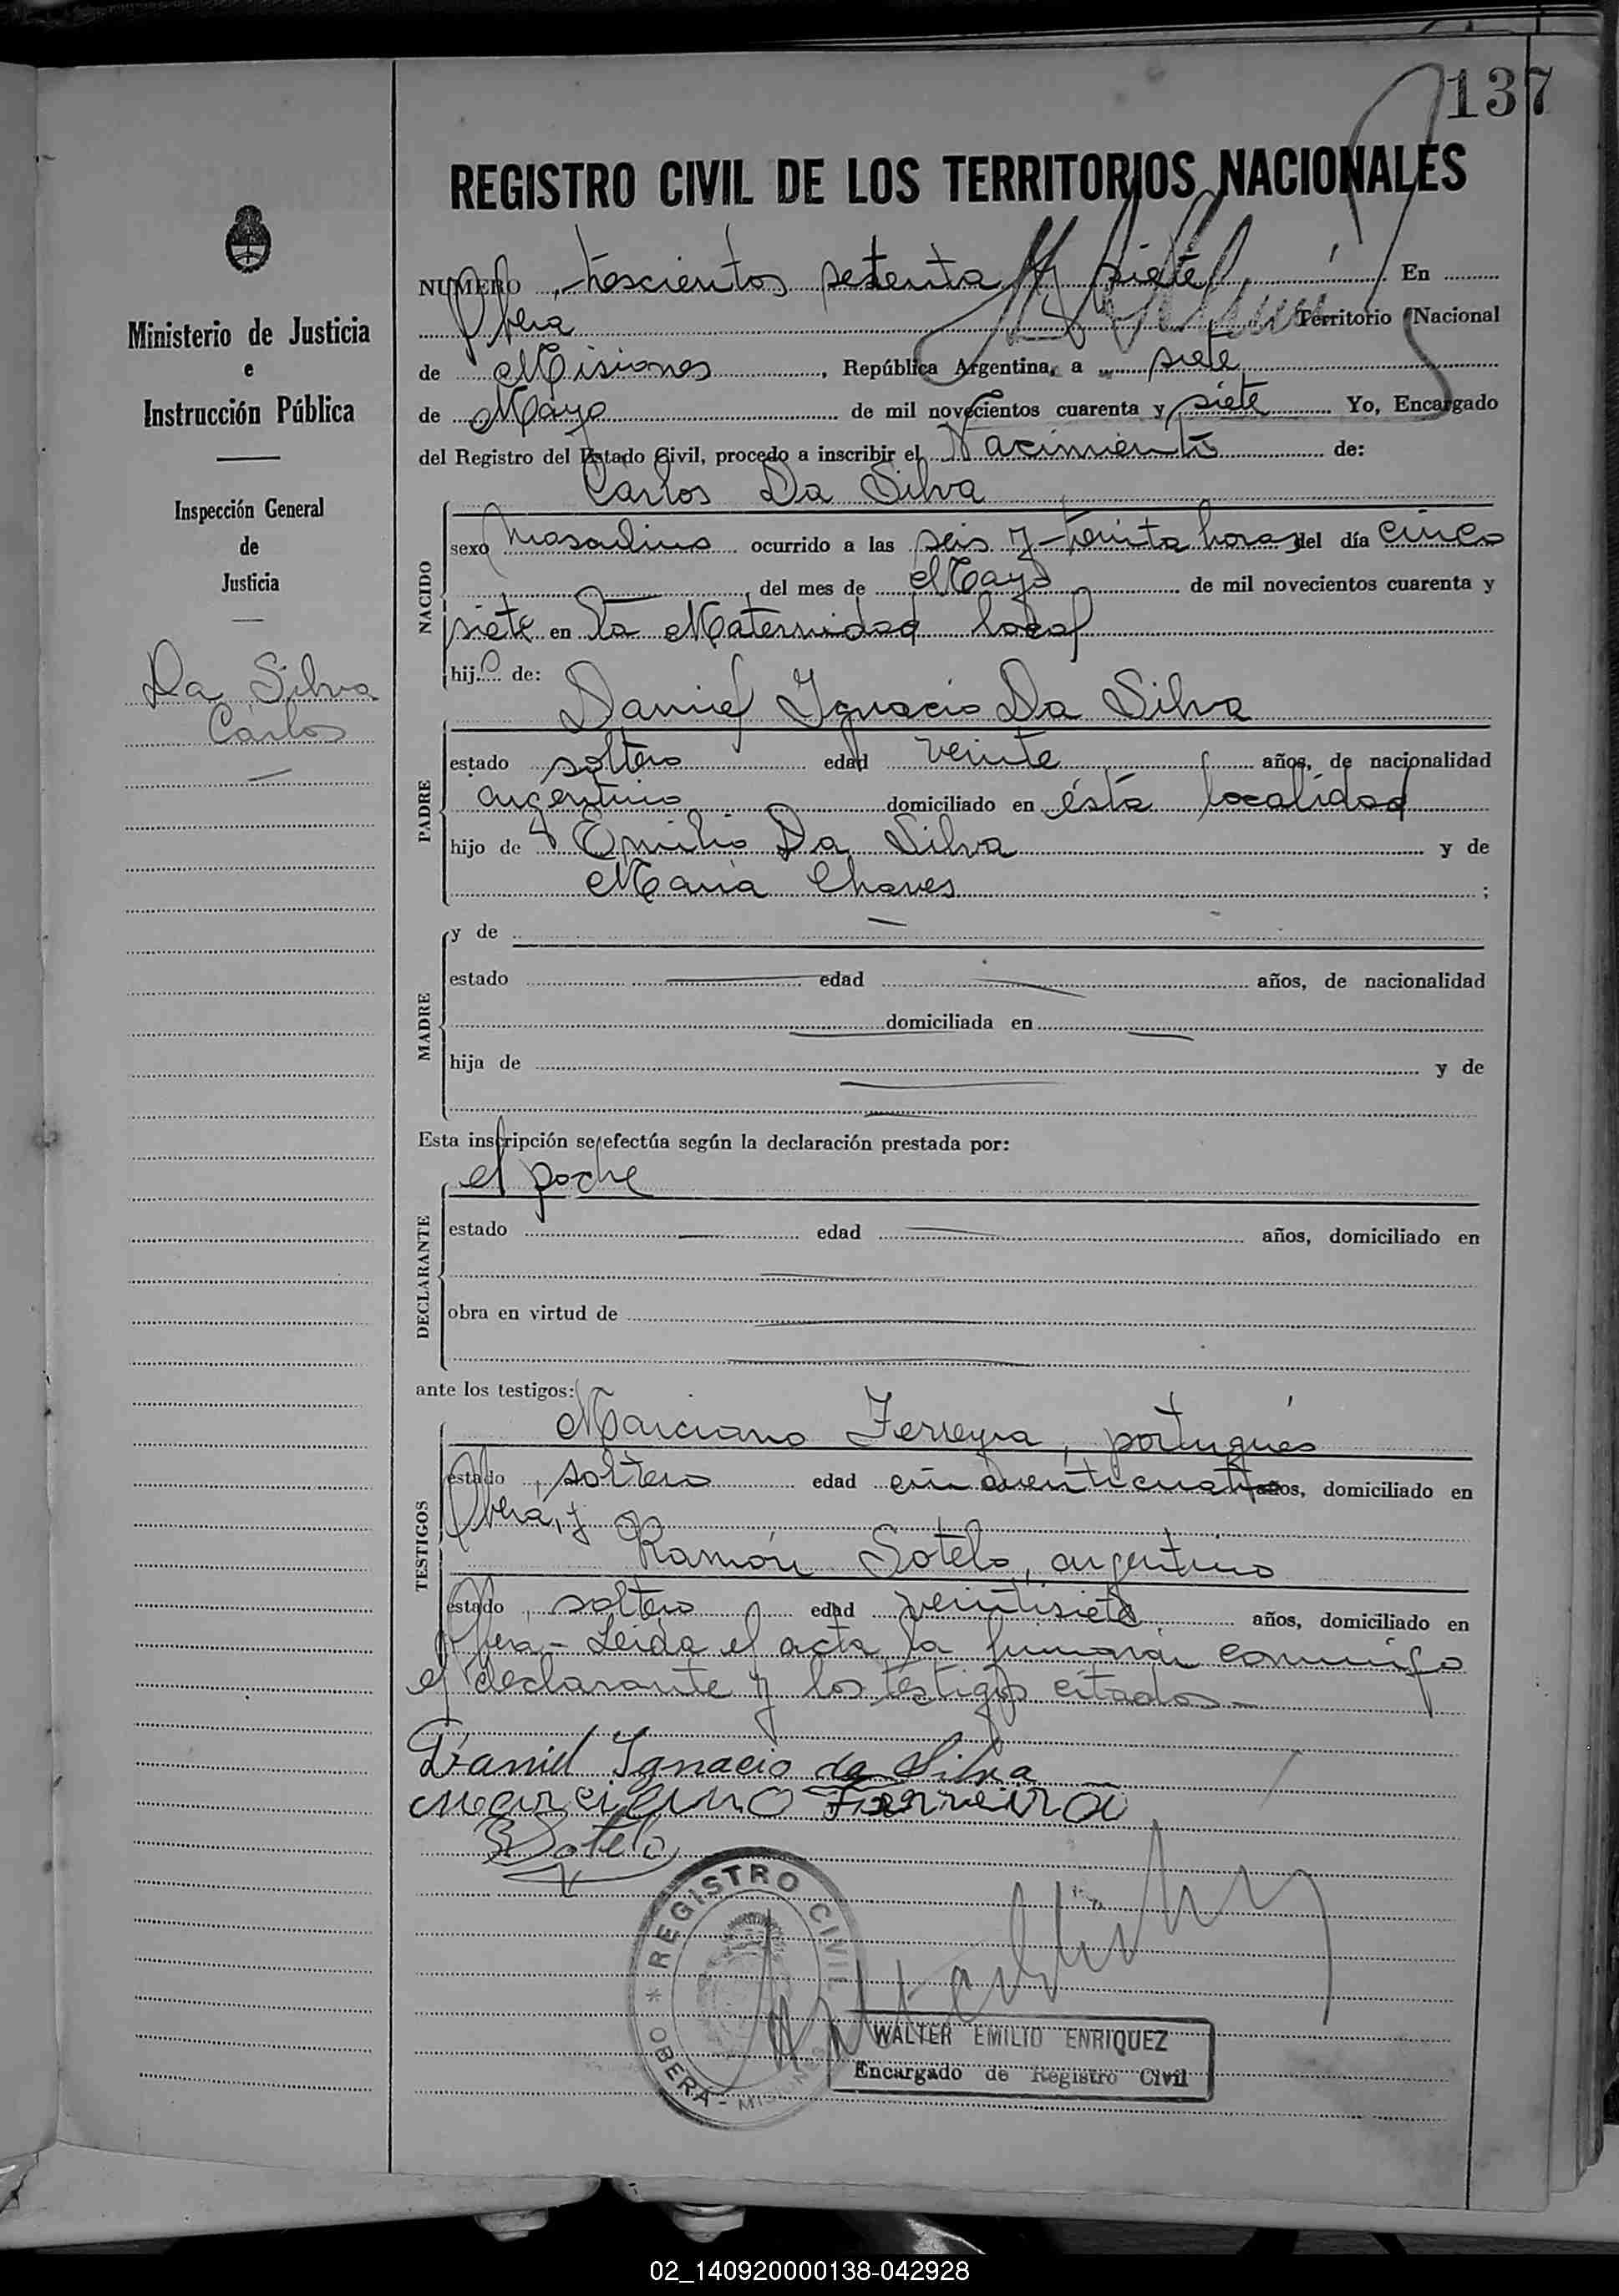 137
REGISTRO CIVIL DE LOS TERRITORIOS NACIONALES
NUMERO trescientos setenta y siete En
Obera Territorio Nacional
de Misiones, República Argentina, a siete
de Mayo de mil novecientos cuarenta y siete Yo, Encargado
del Registro del Estado Civil, procedo a inscribir el Nacimiento de:
Carlos Da Silva
NACIDO
sexo masculino ocurrido a las seis y treinta horas del día cinco
del mes de Mayo de mil novecientos cuarenta y
siete en la Maternidad local
hijo de:
Daniel Ignacio Da Silva
PADRE
estado soltero edad veinte años, de nacionalidad
argentino domiciliado en ésta localidad
hijo de Emilio Da Silva y de
María Chaves ;
MADRE
y de —
estado — edad — años, de nacionalidad
— domiciliada en —
hija de — y de
—
Esta inscripción se efectúa según la declaración prestada por:
el padre
DECLARANTE
estado — edad — años, domiciliado en
—
obra en virtud de —
—
ante los testigos:
Marciano Ferreyra, portugués
TESTIGOS
estado, soltero edad cincuenticuatro años, domiciliado en
Obera, y
Ramón Sotelo, argentino
estado, soltero edad veintisiete años, domiciliado en
Obera- Leida el acta la firmarán conmigo
el declarante y los testigos citados-
Daniel Ignacio da Silva
marciano Ferreira
R Sotelo
REGISTRO CIVIL
* OBERÁ - MISIONES
WALTER EMILIO ENRIQUEZ
Encargado de Registro Civil
Ministerio de Justicia
e
Instrucción Pública
Inspección General
de
Justicia
Da Silva
Carlos
—
02_140920000138-042928